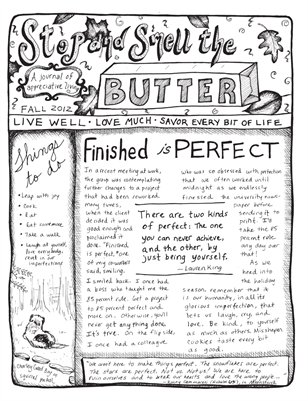 Stop and Smell the
BUTTER
A journal of
appreciative living
FALL 2012
LIVE WELL • LOVE MUCH • SAVOR EVERY BIT OF LIFE
Things
to do
• Leap with joy
• Cook
• Eat
• Eat some more
• Take a walk
• Laugh at yourself,
love everybody,
revel in our
imperfections
Finished is PERFECT
In a recent meeting at work,
the group was contemplating
further changes to a project
that had been reworked
many times,
when the client
decided it was
good enough and
proclaimed it
done. "Finished
is perfect," one
of my coworkers
said, smiling.
I smiled back. I once had
a boss who taught me the
85 percent rule. Get a project
to 85 percent perfect and
move on. Otherwise, you'll
never get anything done.
It's true. On the flip side,
I once had a colleague
There are two kinds
of perfect: The one
you can never achieve,
and the other, by
just being yourself.
—Lauren King
who was so obsessed with perfection
that we often worked until
midnight as we endlessly
finessed the university news-
paper before
sending it to
print. I'll
take the 85
percent rule
any day over
that!
As we
head into
the holiday
season, remember that it
is our humanity, in all its
glorious imperfection, that
lets us laugh, cry, and
love. Be kind, to yourself
as much as others. Misshapen
cookies taste every bit
as good.
"We aren't here to make things perfect. The snowflakes are perfect.
The stars are perfect. Not us. Not us! We are here to
ruin ourselves and to break our hearts and love the wrong people..."